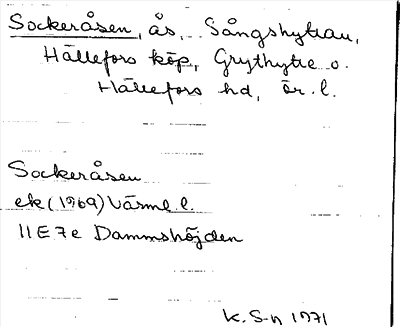 Sockeråsen, ås, Sångshyttan,
Hällefors köp, Grythytte o.
Hällefors hd, Ör. l.
Sockeråsen
ek (1969) Värml. l.
11E7e Dammshöjden
K. S-n 1971